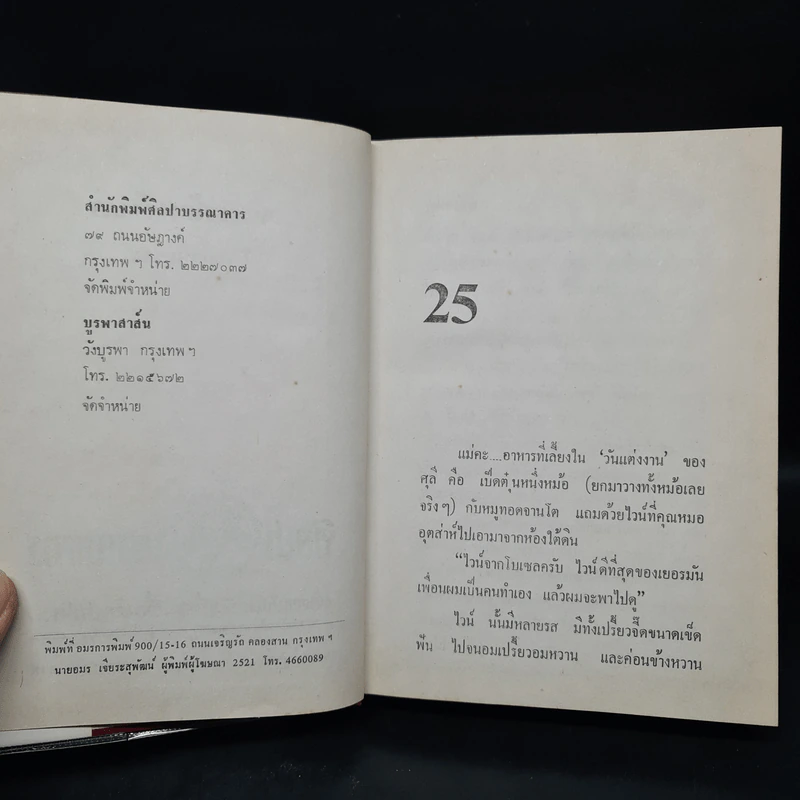 สำนักพิมพ์ศิลปาบรรณาคาร
๗๙ ถนนอัษฎางค์
กรุงเทพ ฯ โทร. ๒๒๒๗๐๓๗
จัดพิมพ์จำหน่าย
บูรพาสาส์น
วังบูรพา กรุงเทพ ฯ
โทร. ๒๒๑๕๖๗๒
จัดจำหน่าย
พิมพ์ที่ อมรการพิมพ์ 900/15-16 ถนนเจริญรัถ คลองสาน กรุงเทพ ฯ
นายอมร เจียระสุพัฒน์ ผู้พิมพ์ผู้โฆษณา 2521 โทร. 4660089
25
แม่คะ....อาหารที่เลี้ยงใน 'วันแต่งงาน' ของ
ศุลี คือ เป็ดตุ๋นหนึ่งหม้อ (ยกมาวางทั้งหม้อเลย
จริง ๆ) กับหมูทอดจานโต แถมด้วยไวน์ที่คุณหมอ
อุตส่าห์ไปเอามาจากห้องใต้ดิน
"ไวน์จากโบเซลครับ ไวน์ดีที่สุดของเยอรมัน
เพื่อนผมเป็นคนทำเอง แล้วผมจะพาไปดู"
ไวน์ นั้นมีหลายรส มีทั้งเปรี้ยวจี๊ดขนาดเข็ด
ฟัน ไปจนอมเปรี้ยวอมหวาน และค่อนข้างหวาน